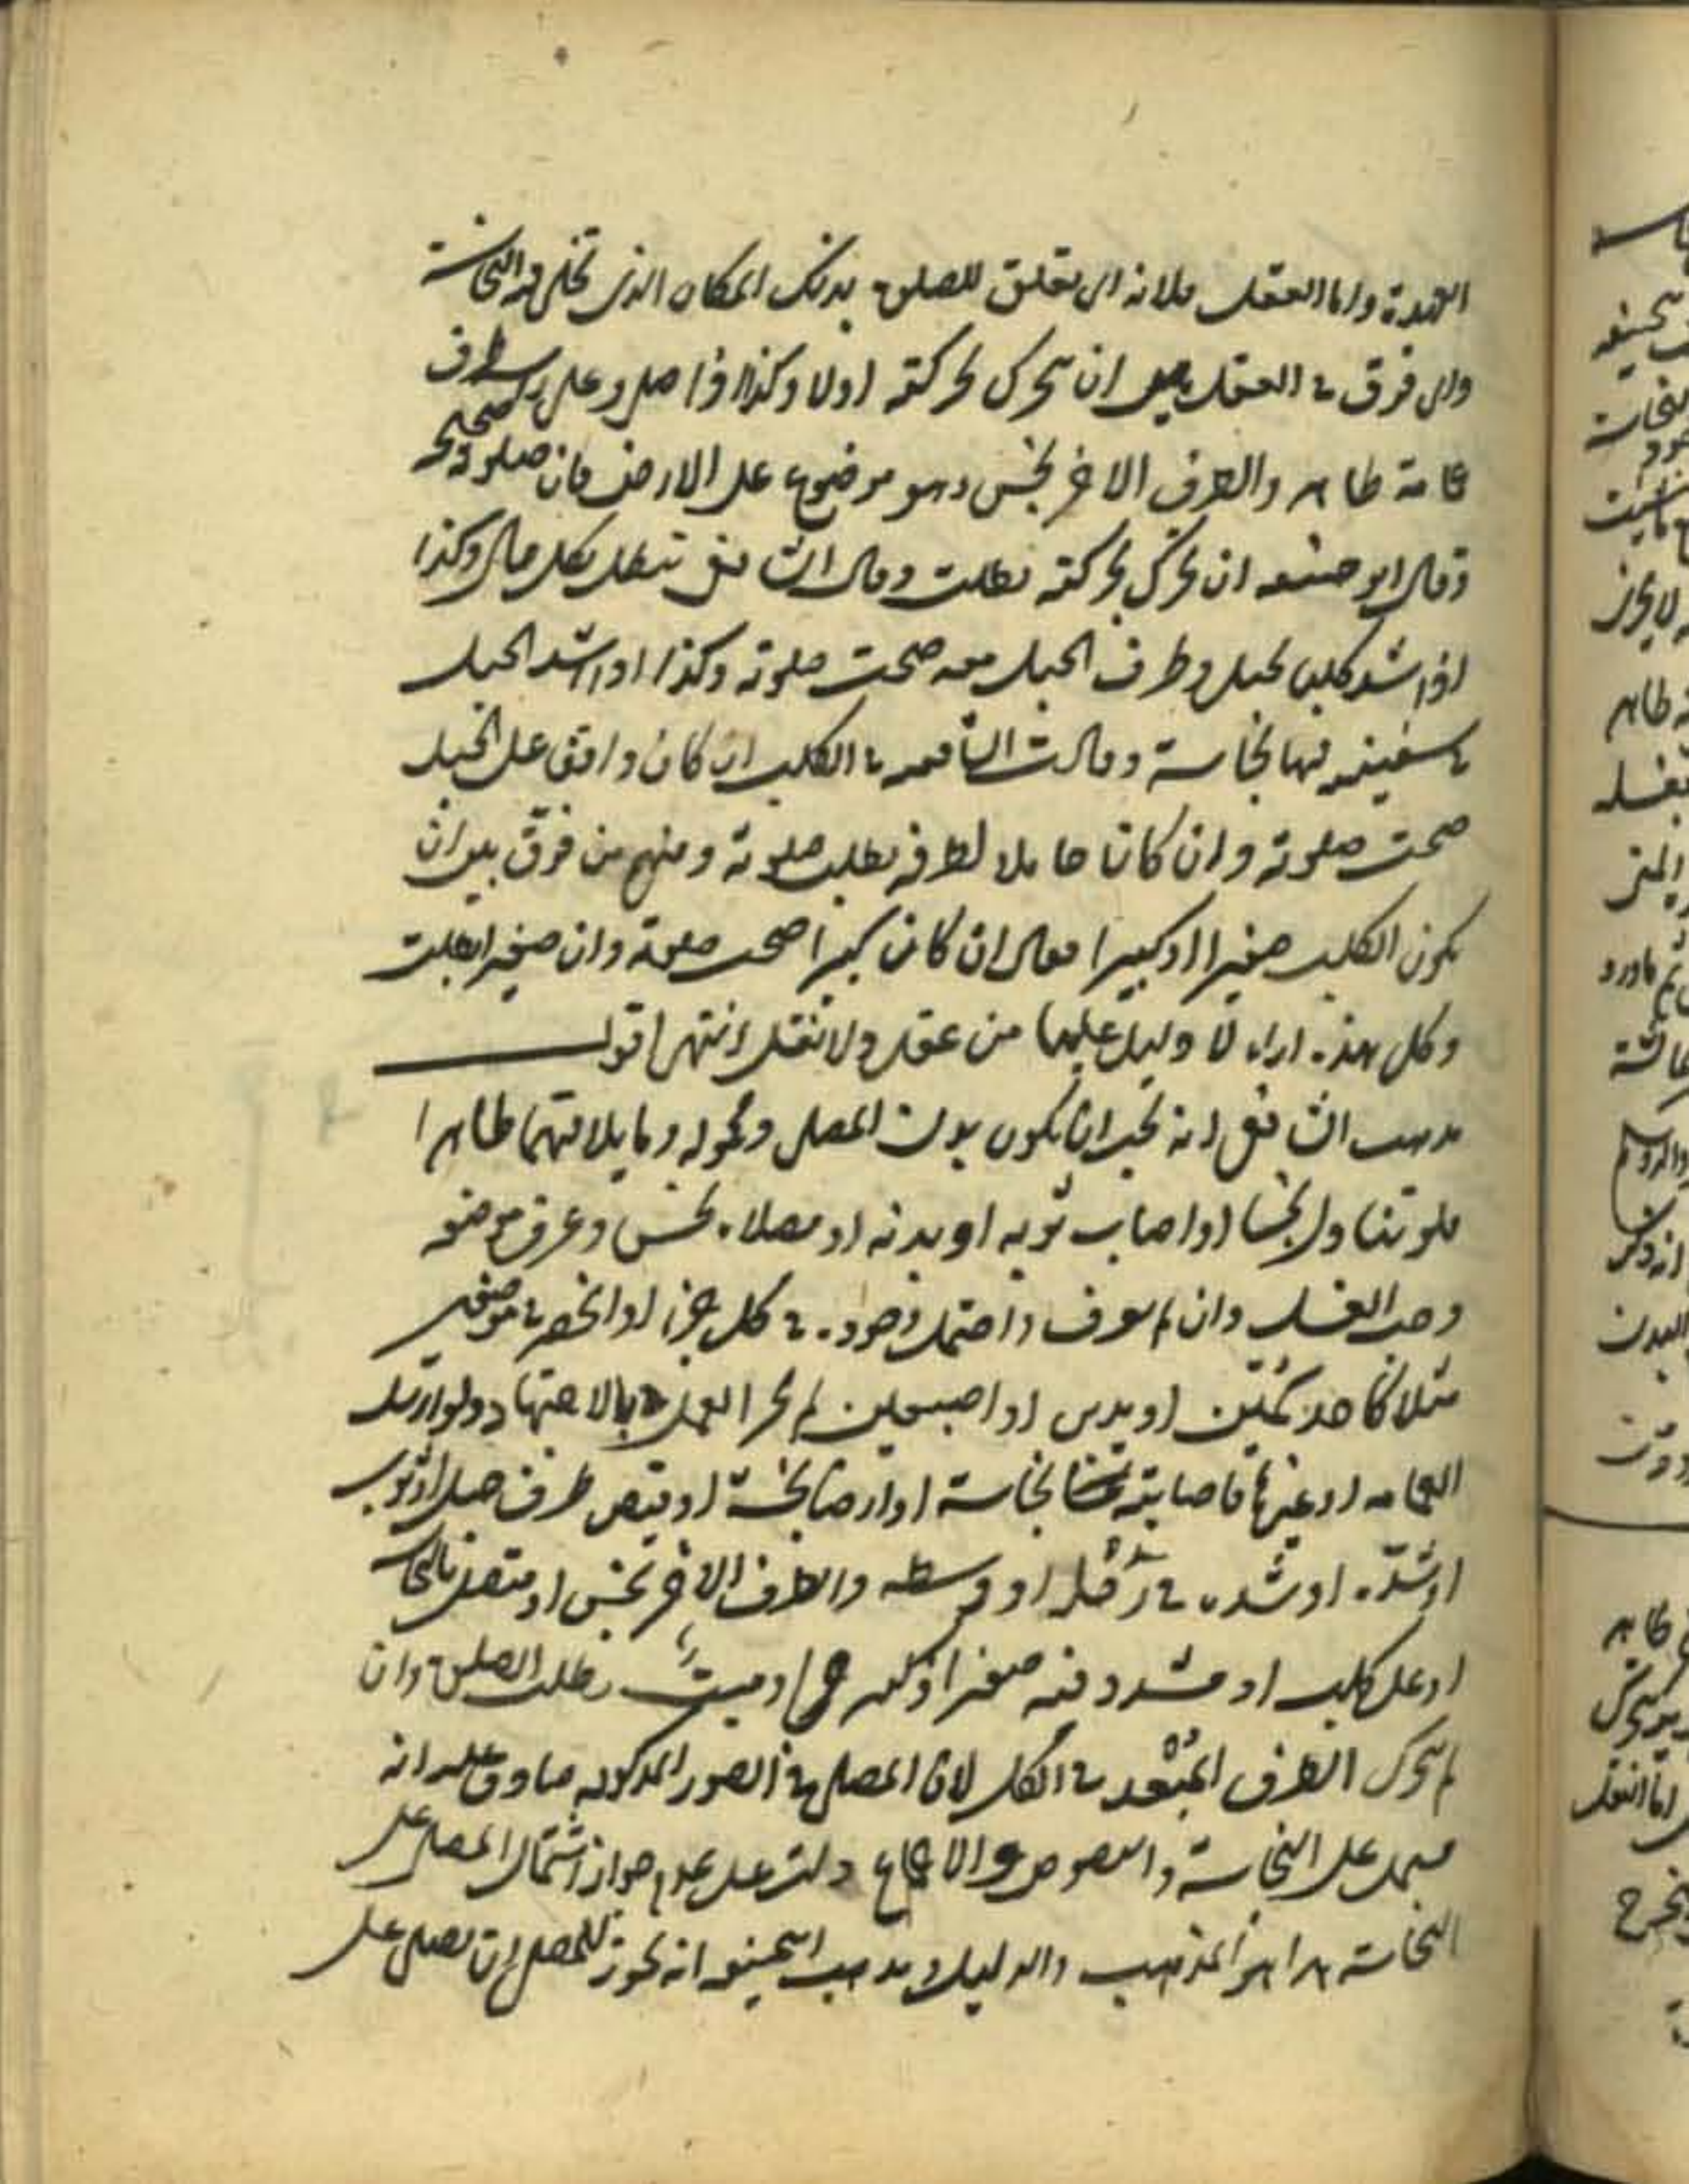 العهدة واما العقل فلانه اى تعلق للصلوة بذلك المكان الذى تحله النجاسة
واى فرق فى العقل بين ان يتحرك بحركته اولا وكذا اذا صلى وعلى راسه طرف
عمامة طاهر والطرف الاخر نجس وهو موضوع على الارض فان صلوته صحيحة
وقال ابو حنيفه ان تحرك بحركته بطلت وقال الشافعى تبطل بكل حال وكذا
اذا شد كلبا بحبل وطرف الحبل معه صحت صلوته وكذا اذا شد الحبل
فى سفينه فيها نجاسة وقالت الشافعيه فى الكلب ان كان واقفا على الحبل
صحت صلوته وان كان حاملا لطرفه بطلت صلوته ومنهم من فرق بين ان
يكون الكلب صغيرا او كبيرا فقال ان كان كبيرا صحت صلوته وان صغيرا بطلت
وكل هذه اراء لا دليل عليها من عقل ولا نقل انتهى اقول
مذهب الشافعى انه يجب ان يكون بدن المصلى ومحموله وما يلاقيهما طاهرا
فلو تناول نجسا او اصاب ثوبه او بدنه او مصلاه نجس وعرف موضعه
وجب الغسل وان لم يعرف واحتمل وجوده فى كل جزء او انحصر فى موضعين
مثلا كاحد كمين او يدين او اصبعين لم يجز العمل بالاجتهاد ولو ارسل
العمامه او غيرها فاصابته نجاسة او ارضا نجسة او قبض طرف حبل او ثوب
او شده او شده فى رجله او وسطه والطرف الاخر نجس او متصل بالنجاسه
او على كلب او مشدود فيه صغير او كبير حى او ميت بطلت الصلوة وان
لم يتحرك الطرف المبعد فى الكل لان المصلى فى الصور المذكوره صادق عليه انه
مشتمل على النجاسة والنصوص والاجماع دلت على عدم جواز اشتمال المصلى على
النجاسة هذا هو المذهب والدليل ومذهب ابى حنيفه انه يجوز للمصلى ان يصلى على